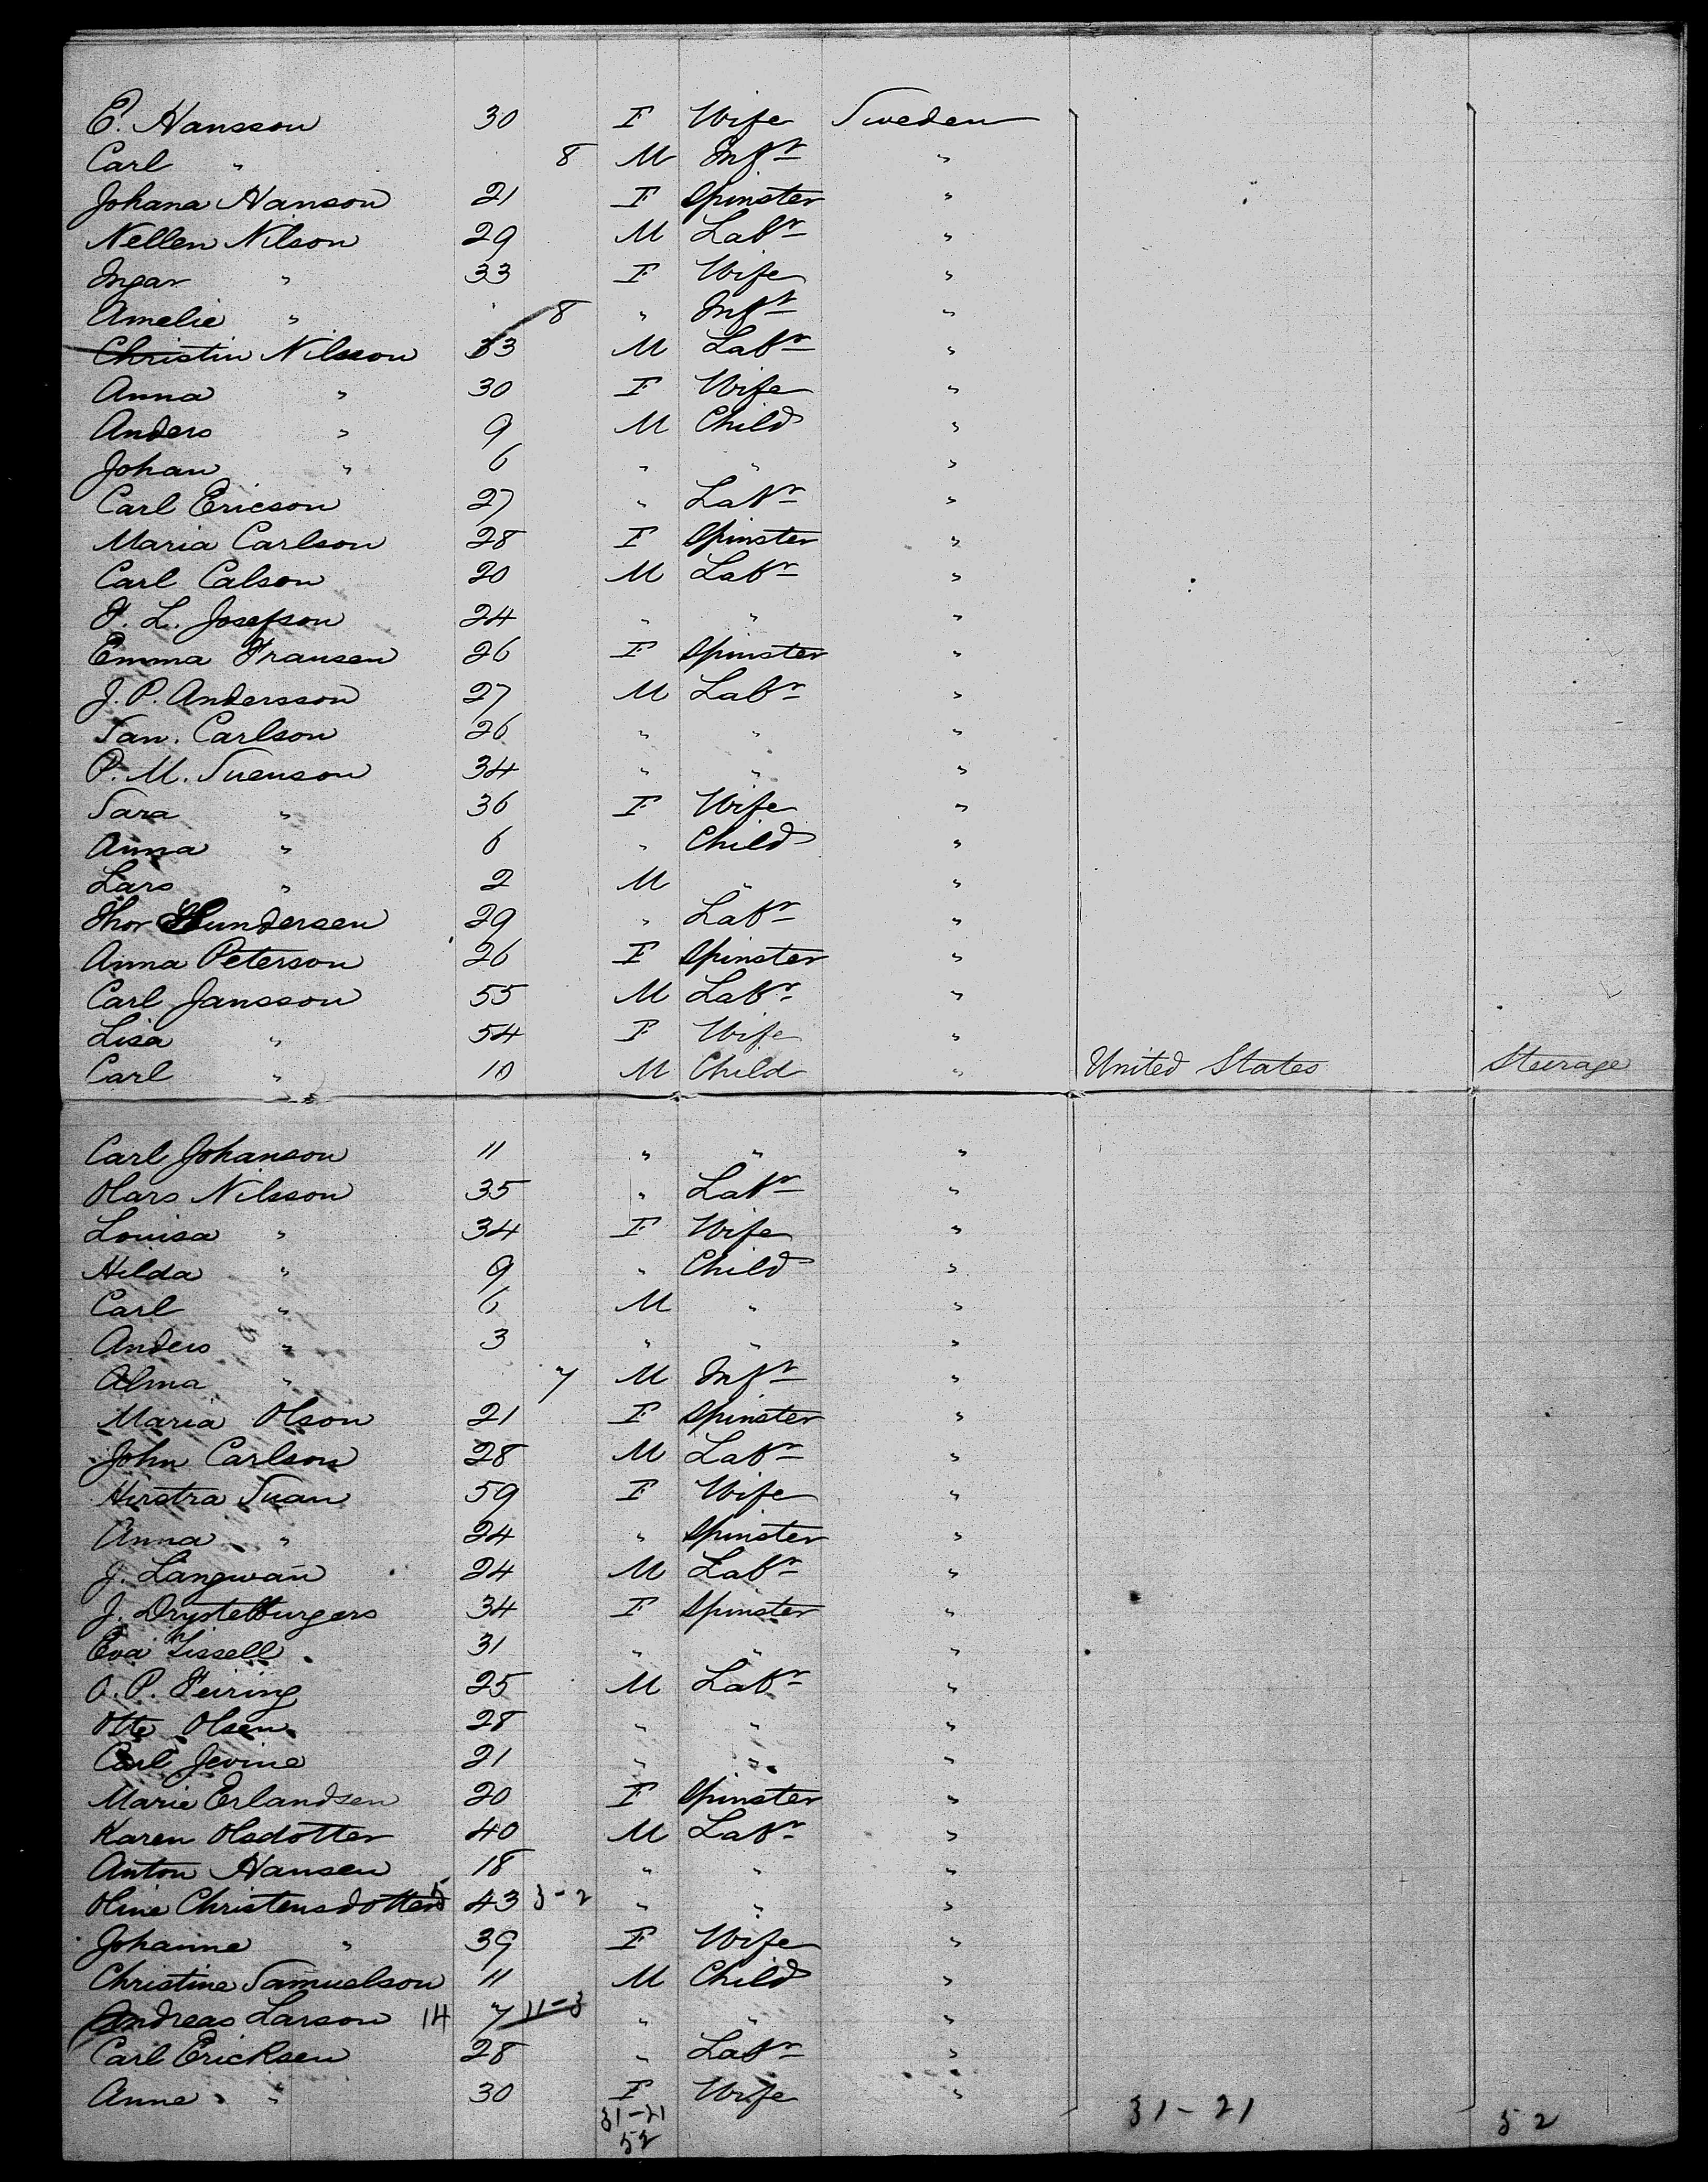 E. Hansson 30 F Wife Sweden
Carl " 8 M Inft "
Johana Hanson 21 F Spinster "
Nellen Nilson 29 M Labr "
Ingar " 33 F Wife "
Amelie " 8 " Inft "
Christin Nilsson 33 M Labr "
Anna " 30 F Wife "
Anders " 9 M Child "
Johan " 6 " " "
Carl Ericson 27 " Labr "
Maria Carlson 28 F Spinster "
Carl Calson 20 M Labr "
F. L. Josefson 24 " " "
Emma Fransen 26 F Spinster "
J. P. Andersson 27 M Labr "
Jan. Carlson 26 " " "
P. M. Svenson 34 " " "
Sara " 36 F Wife "
Anna " 6 " Child "
Lars " 2 M " "
Thor 29 " Labr "
Anna Peterson 26 F Spinster "
Carl Jansson 55 M Labr "
Lisa " 54 F Wife "
Carl " 10 M Child " United States Steerage
Carl Johanson 11 " " "
Olars Nilsson 35 " Labr "
Louisa " 34 F Wife "
Hilda " 9 " Child "
Carl " 6 M " "
Anders " 3 " " "
Alma " 7 M Inft "
Maria Olson 21 F Spinster "
John Carlson 28 M Labr "
Hirstra Suan 59 F Wife "
Anna " 24 " Spinster "
J. Langwan 24 M Labr "
J. 34 F Spinster "
Eva Lissell 31 " " "
O. P. Feiring 25 M Labr "
Otto Olsen 28 " " "
Carl Jevine 21 " " "
Marie Erlandsen 20 F Spinster "
Karen Olsdotter 40 M Labr "
Anton Hansen 18 " " "
Oline Christensdotter 43 3-2 " " "
Johanne " 39 F Wife "
Christine Samuelson 11 M Child "
Andreas Larson 14 7 11-3 " " "
Carl Ericksen 28 " Labr "
Anne " 30 F Wife "
31-21 31-21 52
52